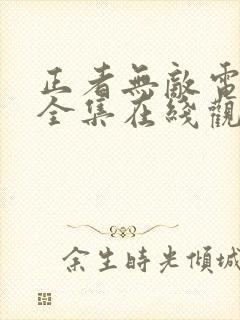 正者無敵電
全集在綫觀
余生時光傾城